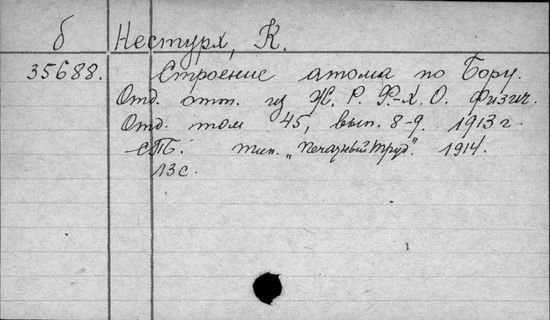 б Нестурх, К.
35688. Строение атома по Бору.
Отд. отт. из Ж. Р. Ф.-Х. О. физич.
Отд. том 45, вып. 8-9. 1913 г.
СПБ. тип. „Печатный труд". 1914.
13 с.